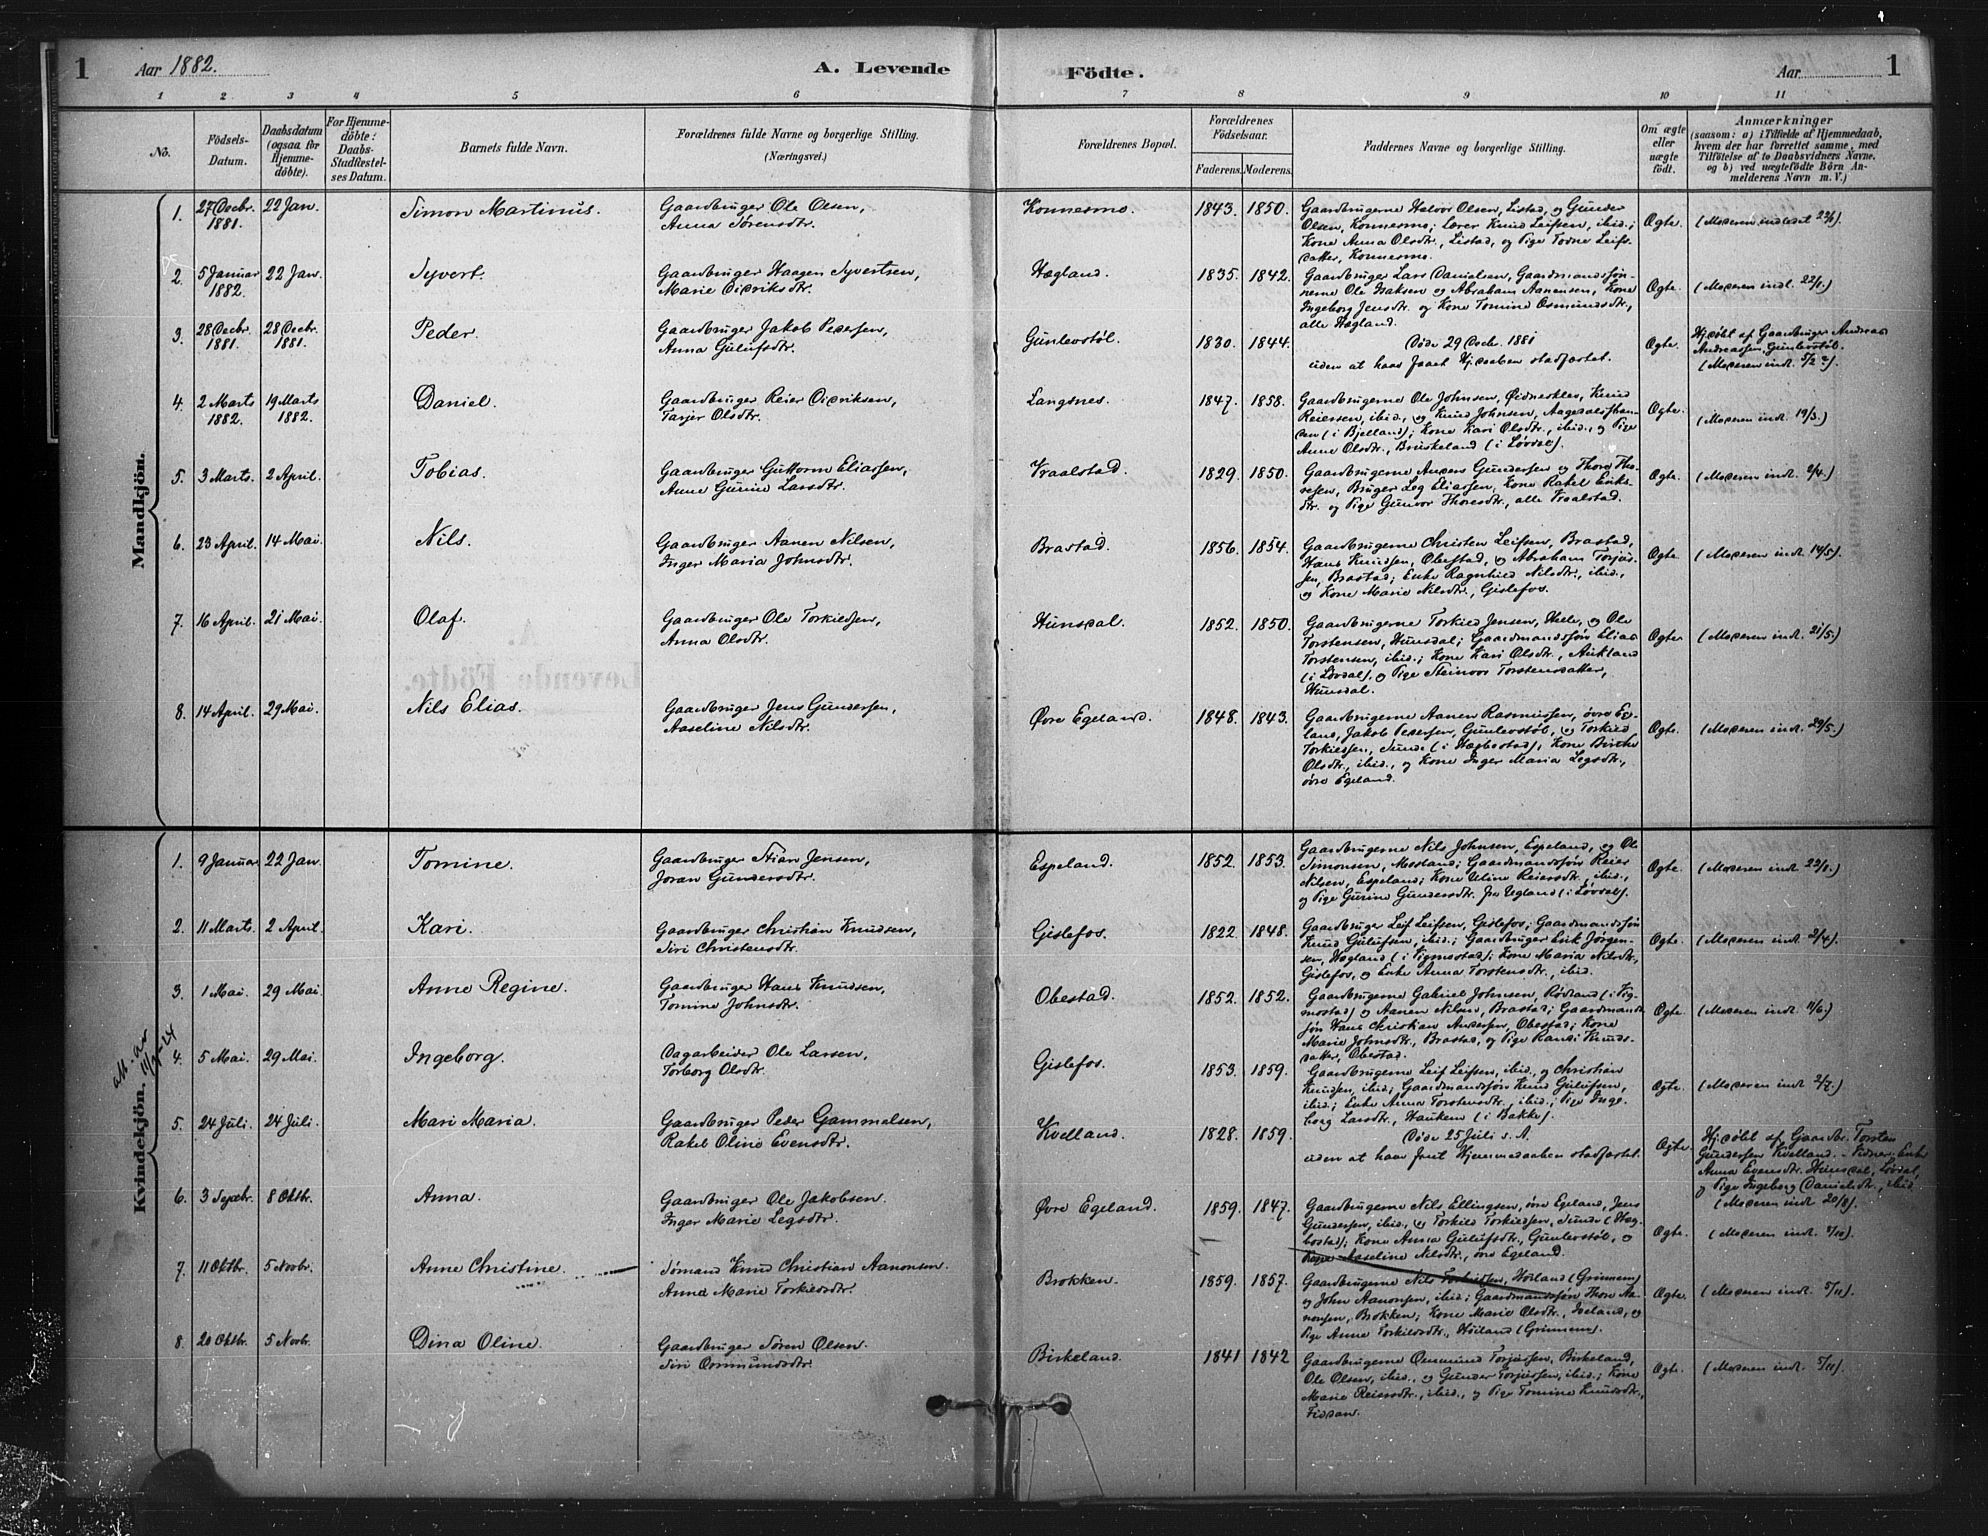 1 Aar 1882. A. Levende Födte. Aar 1
1 2 3 4 5 6 7 8 9 10 11
No.
Födsels-Datum.
Daabsdatum (ogsaa for Hjemme-döbte).
For Hjemme-döbte: Daabs-Stadfæstel-ses Datum.
Barnets fulde Navn.
Forældrenes fulde Navne og borgerlige Stilling.
(Næringsvei.)
Forældrenes Bopæl.
Forældrenes Födselsaar.
Faderens. Moderens.
Faddernes Navne og borgerlige Stilling.
Om ægte eller uægte födt.
Anmærkninger
(saasom: a) i Tilfælde af Hjemmedaab,
hvem der har forrettet samme, med
Tilföielse af to Daabsvidners Navne,
og b) ved uægtefödte Börn An-
melderens Navn m. V.)
Mandkjön.
1. 27 Decbr. 1881. 22 Jan. Simon Martinus. Gaardbruger Ole Olsen,
Anna Sørensdtr. Konnesmo. 1843. 1850. Gaardbrugerne Halvor Olsen, Listad, og Gunder
Olsen, Konnesmo; Lærer Knud Leifsen, ibid.;
Kone Anna Olsdtr., Listad, og Pige Todne Leifs-
datter, Konnesmo. Ægte. (Moderen indledet 22/1).
2. 5 Januar 1882. 22 Jan. Syvert. Gaardbruger Haagen Syvertsen,
Marie Didriksdtr. Hægland. 1835. 1842. Gaardbruger Lars Danielsen, Gaardmandssøn-
nerne Ole Isaksen og Abraham Aanensen, Kone
Ingeborg Jensdtr. og Kone Tomine Osmundsdtr.,
alle Hægland. Ægte. (Moderen indl. 22/1.)
3. 28 Decbr. 1881. 28 Decbr. 1881. Peder. Gaardbruger Jakob Pedersen,
Anna Gulufsdtr. Gunlevstøl. 1830. 1844. Døde 29 Decb. 1881
uden at have faaet Hj.daaben stadfæstet. Ægte. Hj.døbt af Gaardbruger Andreas
Andreassen, Gunlevstøl.
(Moderen indl. 5/2 2).
4. 2 Marts 1882. 19 Marts 1882. Daniel. Gaardbruger Reier Didriksen,
Tarjer Olsdtr. Langsnes. 1847. 1858. Gaardbrugerne Ole Johnsen, Øidneskley, Knud
Reiersen, ibid., og Knud Johnsen,
(i Bjelland); Kone Kari Olsdtr., ibid., og Pige
Anne Olsdtr., Bruskeland (i Løvdal). Ægte. (Moderen indt. 19/3.)
5. 3 Marts. 2 April. Tobias. Gaardbruger Guttorm Eliassen,
Anne Gurine Larsdtr. Kraalstad. 1829. 1850. Gaardbrugerne Anders Gundersen og Thore Tho-
resen, Bruger Leg Eliassen, Kone Rakel Eriks-
dtr. og Pige Gunvor Thoresdtr., alle Kraalstad. Ægte. (Moderen indt. 2/4.)
6. 23 April. 14 Mai. Nils. Gaardbruger Aanen Nilsen,
Inger Maria Johnsdtr. Brastad. 1856. 1854. Gaardbrugerne Christen Leifsen, Brastad,
Hans Knudsen, Obestad, og Abraham Torjus-
sen, Brastad; Enke Ragnhild Nilsdtr., ibid.,
og Kone Marie Nilsdtr., Gislefos. Ægte. (Moderen indt. 14/5).
7. 16 April. 21 Mai. Olaf. Gaardbruger Ole Torkildsen,
Anna Olsdtr. Hunsdal. 1852. 1850. Gaardbrugerne Torkild Jensen, Helle, og Ole
Torstensen, Hunsdal; Gaardmandssøn Elias
Torstensen, ibid.; Kone Kari Olsdtr., Aukland
(i Løvdal), og Pige Steinvor Torstensdatter,
Hunsdal. Ægte. (Moderen indt. 21/5.)
8. 14 April. 29 Mai. Nils Elias. Gaardbruger Jens Gundersen,
Aaseline Nilsdtr. Øvre Egeland. 1848. 1843. Gaardbrugerne Aanen Rasmussen, øvre Eg-
land, Jakob Pedersen, Gunlevstøl, og Torkild
Torkildsen, Sunde (i Hægbostad); Kone Birthe
Olsdtr., ibid., og Kone Inger Maria Legsdtr.,
øvre Egeland. Ægte. (Moderen indt. 29/5.)
Kvindekjön.
1. 9 Januar 22 Jan. Tomine. Gaardbruger Stian Jensen,
Joran Gundersdtr. Espeland. 1852. 1853. Gaardbrugerne Nils Johnsen, Espeland, og Ole
Simonsen, Mosland; Gaardmandssøn Reier
Nilsen, Espeland; Kone Uline Reiersdtr., ibid.,
og Pige Gurine Gundersdtr. fra Ugland (i Løvdal). Ægte. (Moderen indt. 22/1.)
2. 11 Marts. 2 April. Kari. Gaardbruger Christian Knudsen,
Siri Christensdtr. Gislefos. 1822. 1848. Gaardbruger Leif Leifsen, Gislefos; Gaardmandssøn
Knud Gulufsen, ibid.; Gaardbruger Erik Jørgen-
sen, Hægland (i Vigmostad); Kone Maria Nilsdtr.,
Gislefos, og Enke Anna Torstensdtr., ibid. Ægte. (Moderen indt. 2/4).
3. 1 Mai. 29 Mai. Anne Regine. Gaardbruger Hans Knudsen,
Tomine Johnsdtr. Obestad. 1852. 1852. Gaardbrugerne Gabriel Johnsen, Rødland (i Vig-
mostad) og Aanen Nilsen, Brastad; Gaardmands-
søn Hans Christian Andersen, Obestad; Kone
Marie Johnsdtr., Brastad, og Pige Randi Knuds-
datter, Obestad. Ægte. (Moderen indt. 11/6.)
att. av 11/9-24
4. 5 Mai. 29 Mai. Ingeborg. Dagarbeider Ole Larsen,
Torborg Olsdtr. Gislefos. 1853. 1859. Gaardbrugerne Leif Leifsen, ibid., og Christian
Knudsen, ibid.; Gaardmandssøn Knud Gulufsen,
ibid.; Enke Anna Torstensdtr., ibid.; Pige Inge-
borg Larsdtr., Hauken (i Bakke). Ægte. (Moderen indt 2/7.)
5. 24 Juli. 24 Juli. Mari Maria. Gaardbruger Peder Gammelsen,
Rakel Oline Evensdtr. Kvelland. 1828. 1859. Døde 25 Juli s. A.
uden at have faaet Hjemmedaaben stadfæstet. Ægte. Hj.døbt af Gaardbr. Torsten
Gundersen Kvelland. - Vidner: Enke
Anna Evensdtr. Hunsdal, Løvdal,
og Pige Ingeborg Danielsdtr., ibid.
(Moderen indt 20/8).
6. 3 Septbr. 8 Oktbr. Anna. Gaardbruger Ole Jakobsen.
Inger Marie Legsdtr. Øvre Egeland. 1859. 1847. Gaardbrugerne Nils Ellingsen, øvre Egeland, Jens
Gundersen, ibid., og Torkild Torkildsen, Sunde (Hæg-
bostad); Kone Anna Gulufsdtr., Gunlevstøl, og
Pige Aaseline Nilsdtr., øvre Egeland. Ægte. (Moderen indt. 8/10).
7. 11 Oktbr. 5 Novbr. Anne Christine. Sømand Knud Christian Aanonsen.
Anna Marie Torkildsdtr. Brokken. 1859. 1857. Gaardbrugerne Nils Torkildsen, Høiland (Grinnem)
og John Aanonsen, ibid.; Gaardmandssøn Thore Aa-
nonsen, Brokken; Kone Marie Olsdtr., Iveland, og
Pige Anne Torkildsdtr., Høiland (Grinnem). Ægte. (Moderen indt. 5/11).
8. 20 Oktbr. 5 Novbr. Dina Oline. Gaardbruger Søren Olsen.
Siri Osmundsdtr. Birkeland. 1841 1842 Gaardbrugerne Osmund Torjussen, Birkeland,
Ole Olsen, ibid., og Gunder Torjussen, ibid.; Kone
Marie Reiersdtr., ibid., og Pige Tomine Knudsdtr.,
Fidsan. Ægte. (Moderen indt. 5/11).